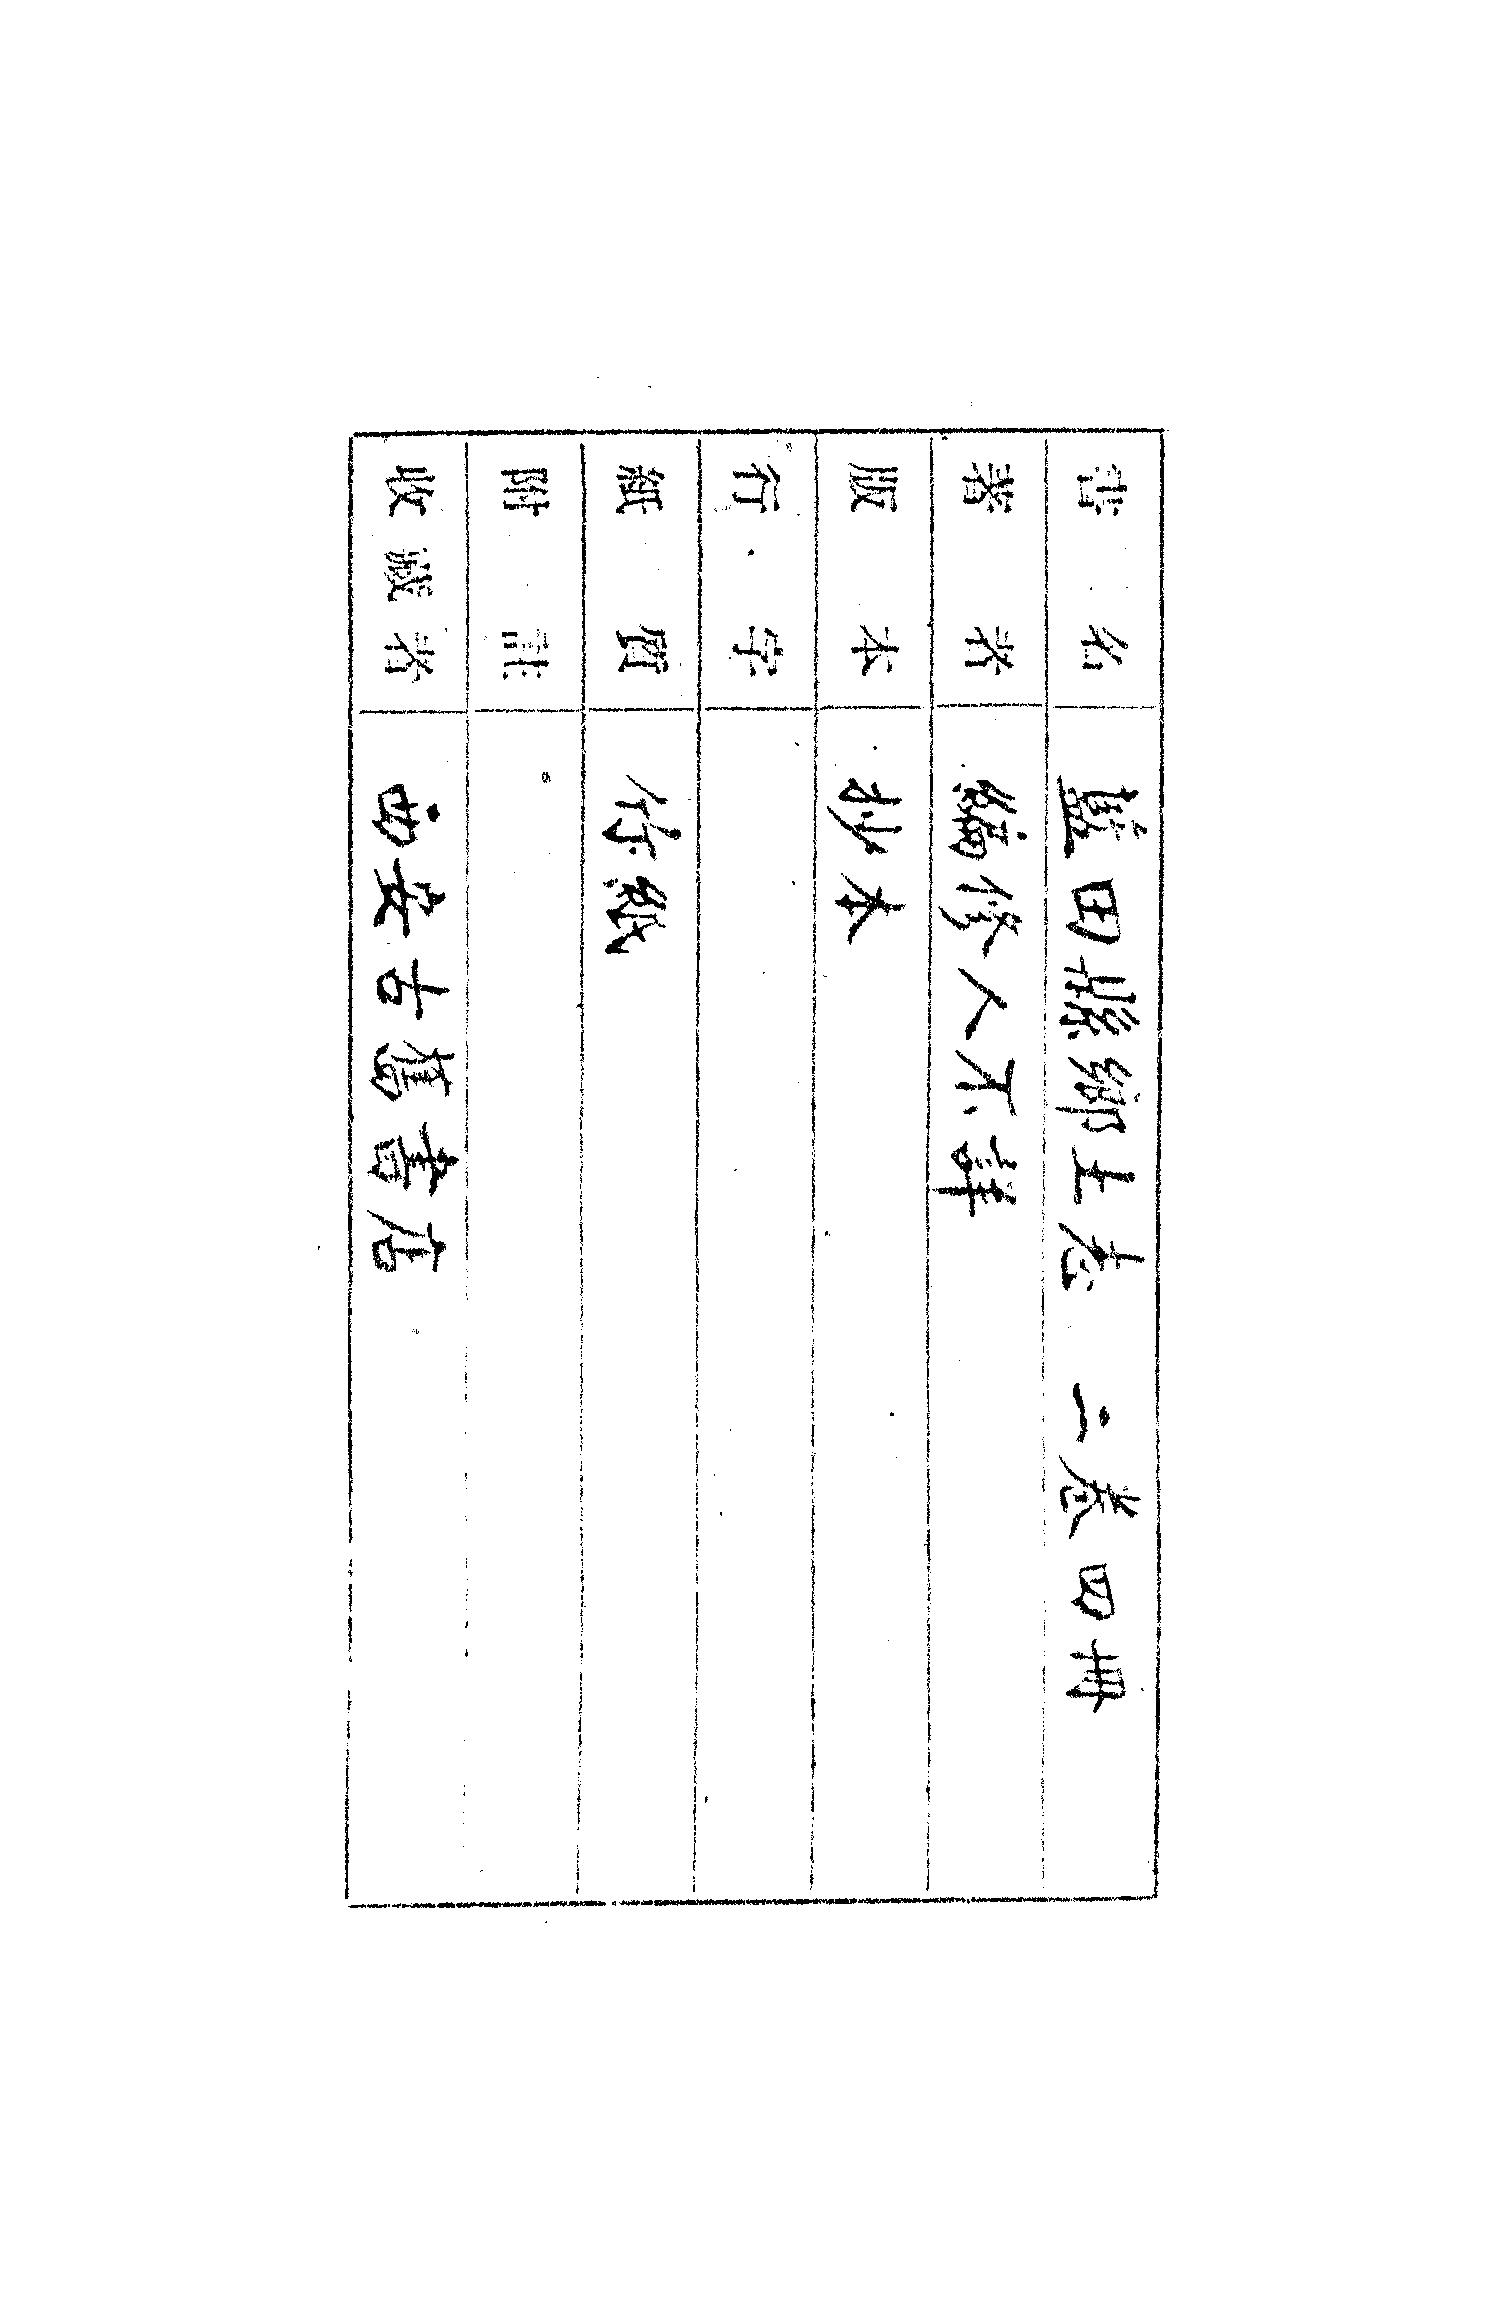 書名 藍田縣鄉土志 二卷四冊
著者 編修人不詳
版本 抄本
行字
紙質 竹紙
附註
收藏者 西安古舊書店